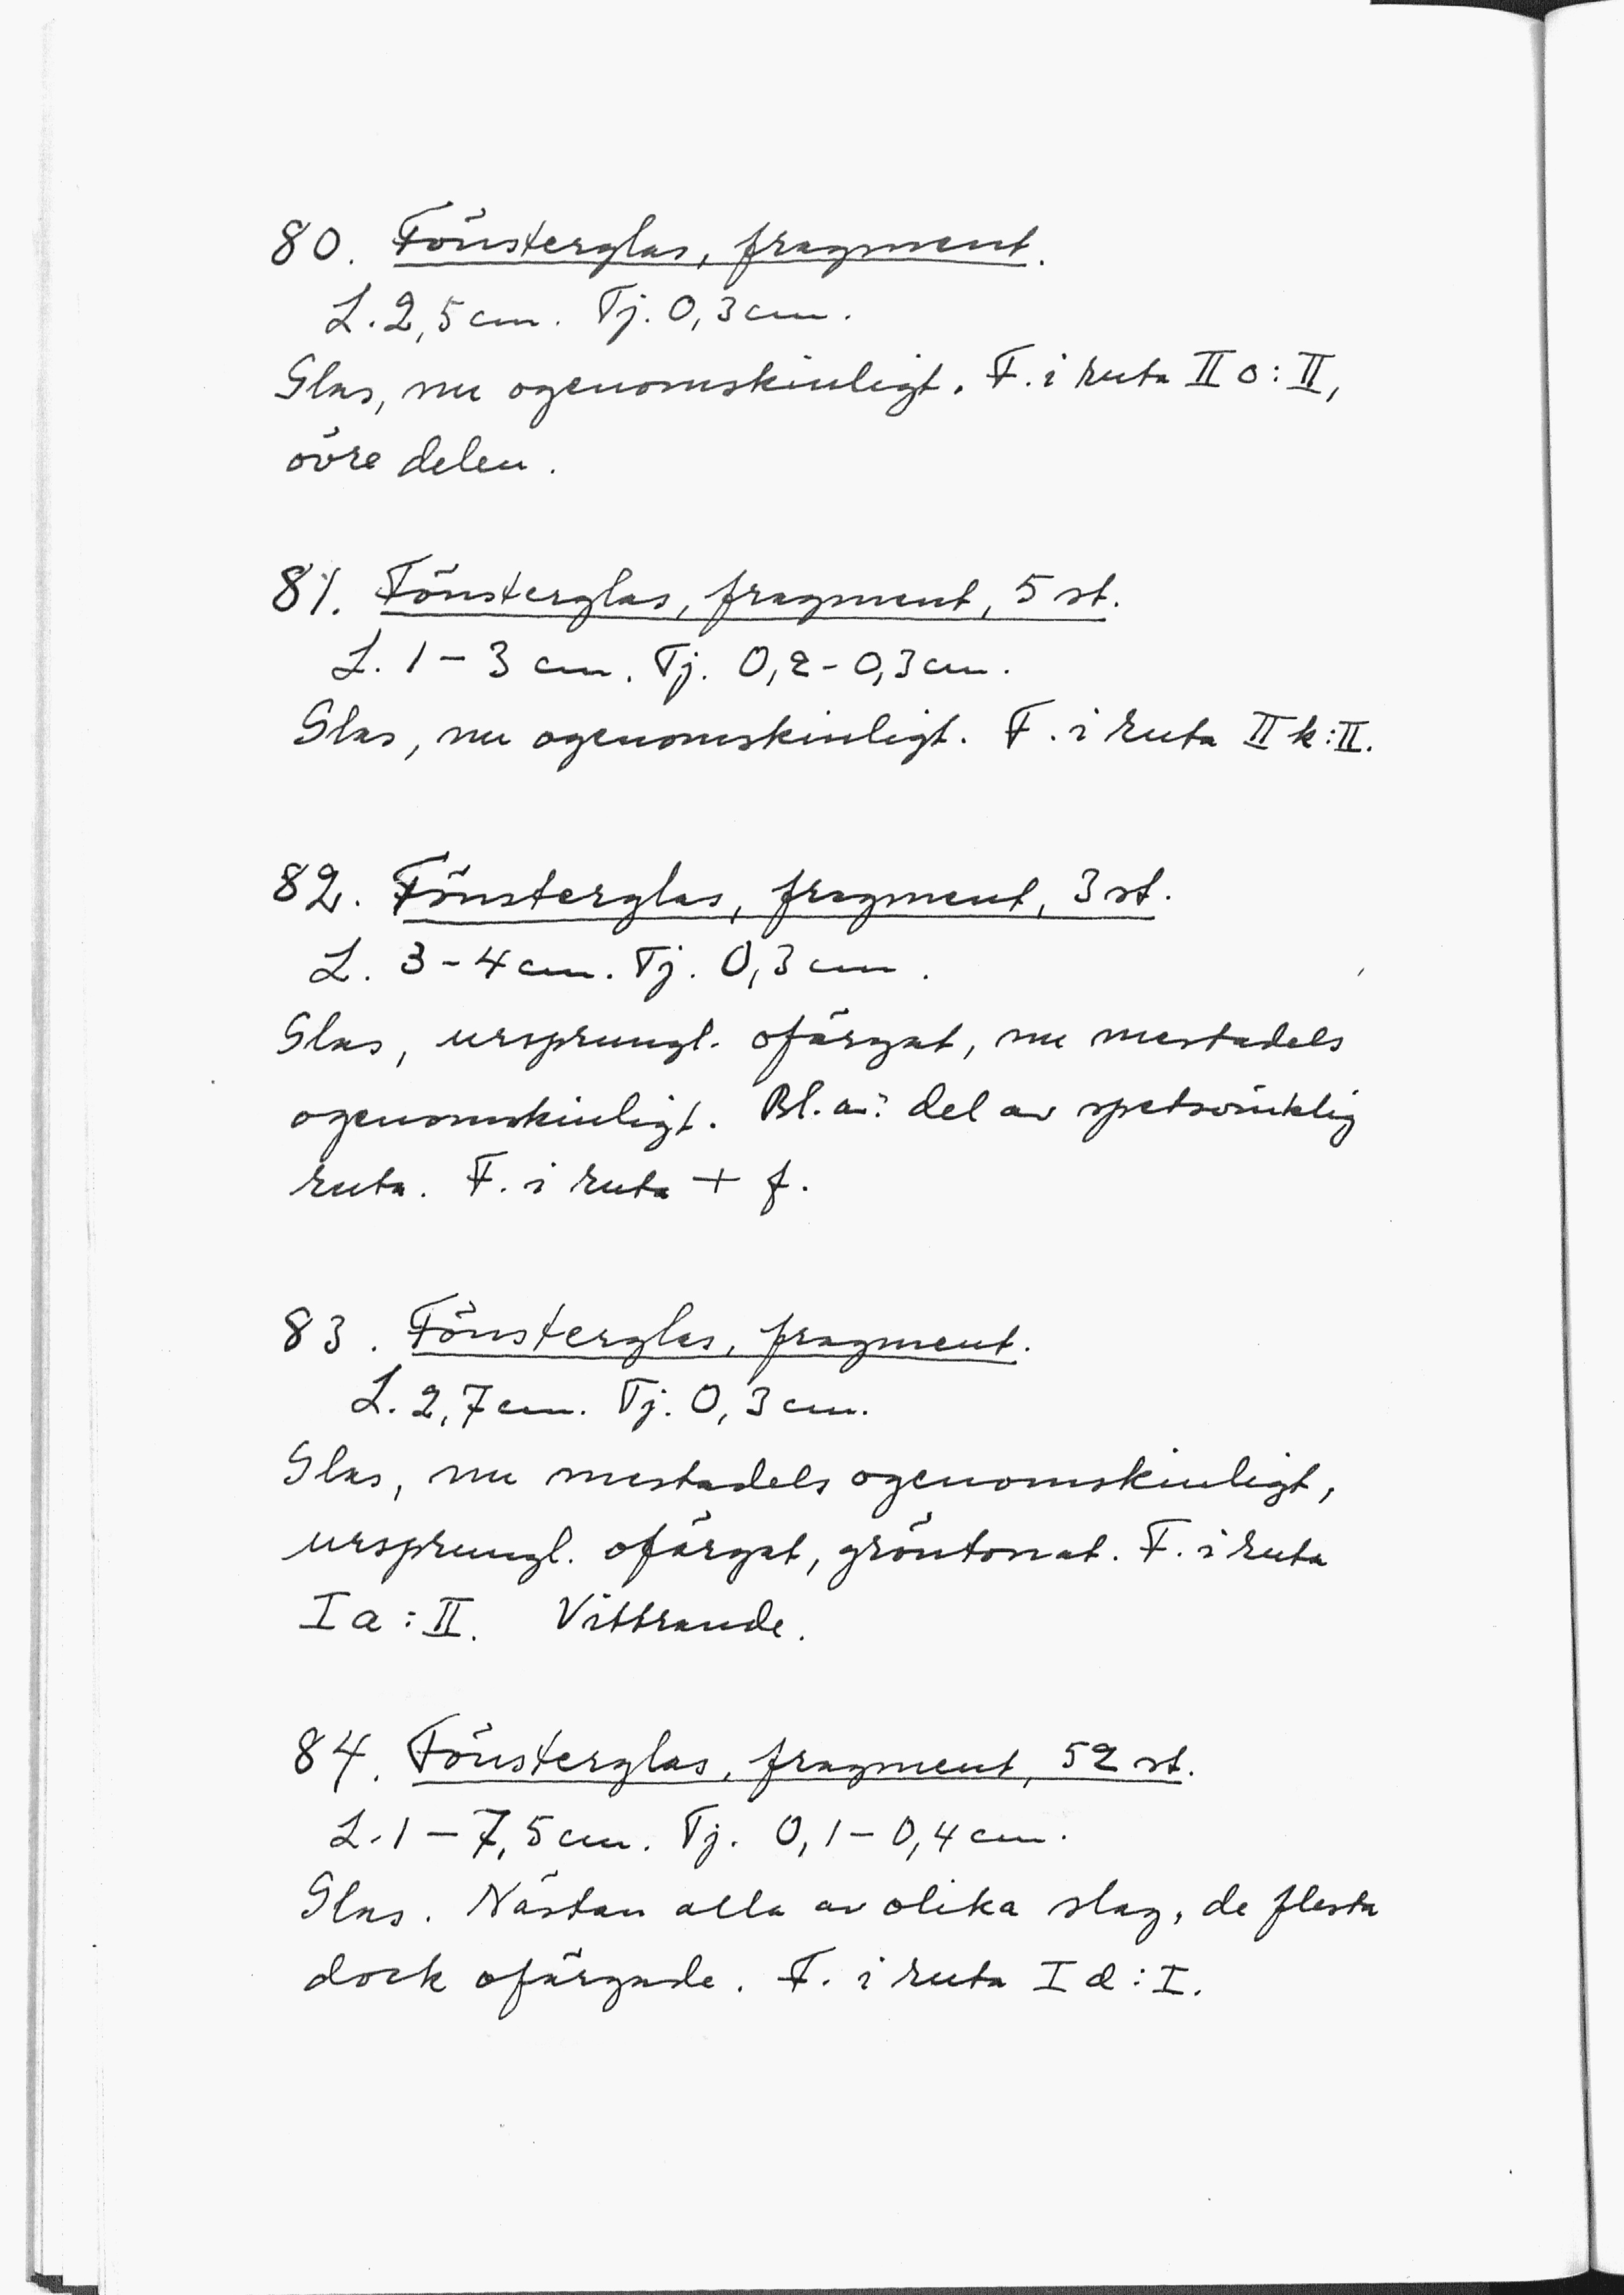 80. Fönsterglas, fragment.
L. 2,5 cm. Tj. 0,3 cm.
Glas, nu ogenomskinligt. F. i ruta II o : II,
övre delen.
81. Fönsterglas, fragment, 5 st.
L. 1 – 3 cm. Tj. 0,2 - 0,3 cm.
Glas, nu ogenomskinligt. F. i ruta II k : II.
82. Fönsterglas, fragment, 3 st.
L. 3 - 4 cm. Tj. 0,3 cm.
Glas, ursprungl. ofärgat, nu mestadels
ogenomskinligt. Bl. a. del av spetsvinklig
ruta. F. i ruta + f.
83. Fönsterglas, fragment.
L. 2,7 cm. Tj. 0,3 cm.
Glas, nu mestadels ogenomskinligt,
ursprungl. ofärgat, gröntonat. F. i ruta
I a : II. Vittrande.
84. Fönsterglas, fragment, 52 st.
L. 1 – 7,5 cm. Tj. 0,1 – 0,4 cm.
Glas. Nästan alla av olika slag, de flesta
dock ofärgade. F. i ruta I d : I.